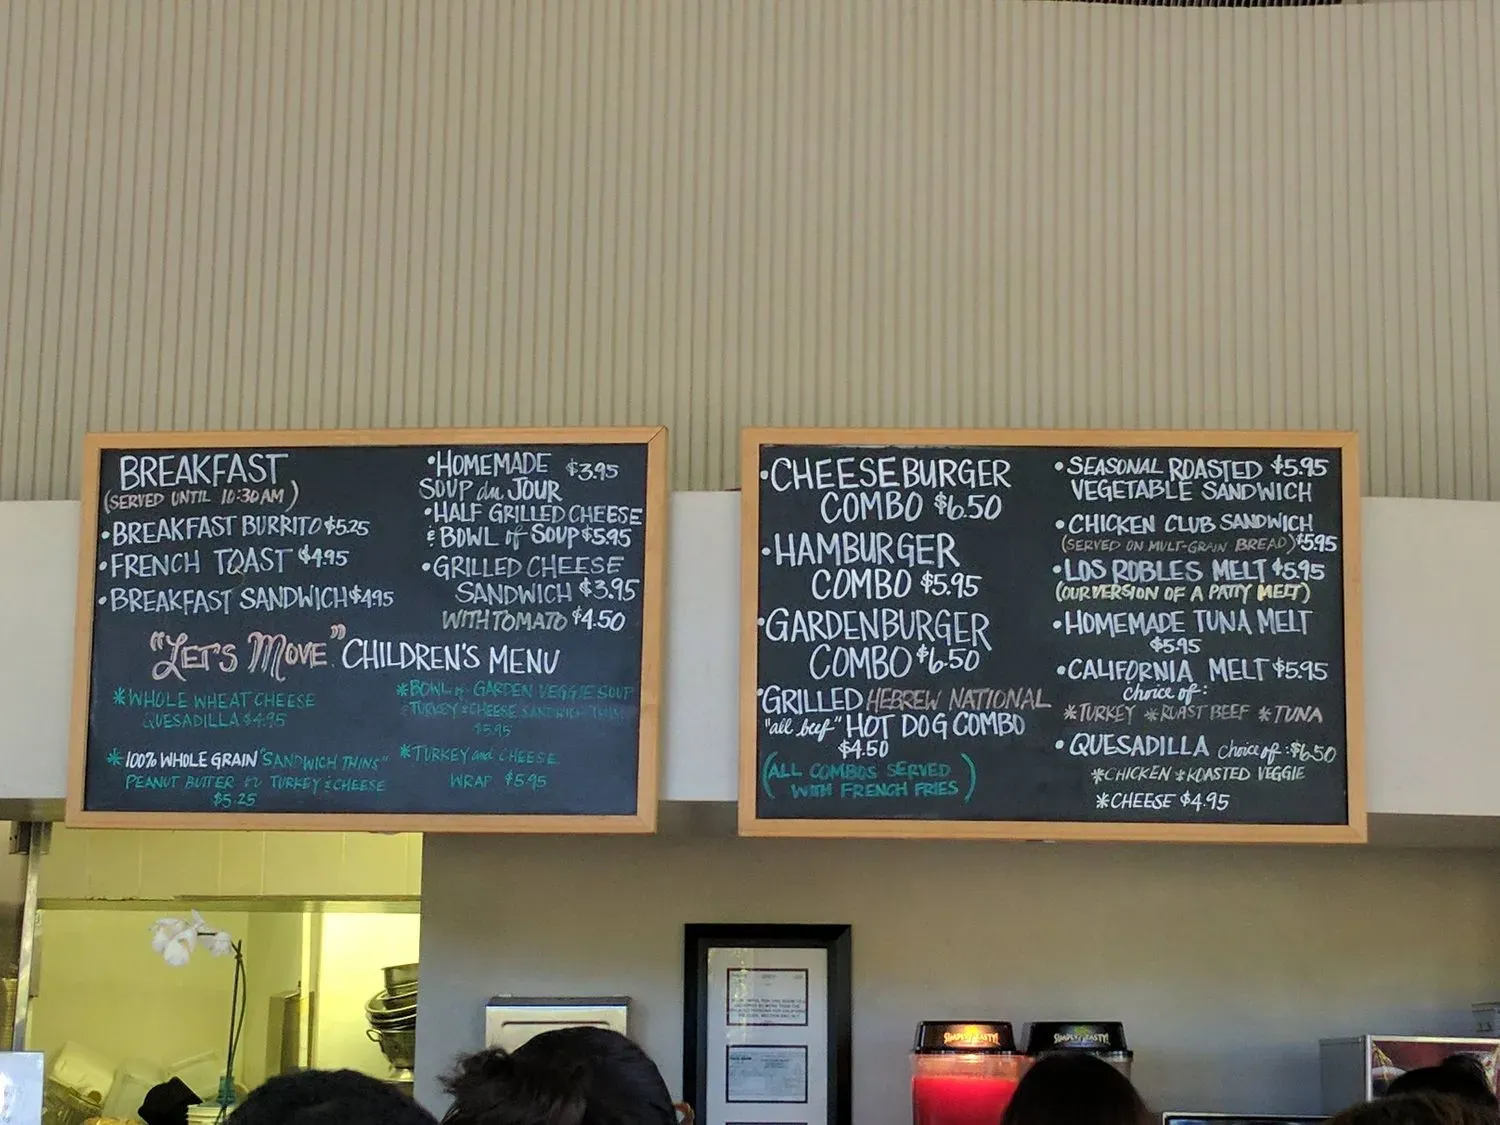 BREAKFAST
(SERVED UNTIL 10:30AM)
•BREAKFAST BURRITO $5.25
•FRENCH TOAST $4.95
•BREAKFAST SANDWICH $4.95
•HOMEMADE $3.95
SOUP du JOUR
•HALF GRILLED CHEESE
& BOWL of SOUP $5.95
•GRILLED CHEESE
SANDWICH $3.95
WITH TOMATO $4.50
"LET'S MOVE" CHILDREN'S MENU
*WHOLE WHEAT CHEESE
QUESADILLA $4.95
*100% WHOLE GRAIN "SANDWICH THINS"
PEANUT BUTTER or TURKEY & CHEESE
$5.25
*BOWL of GARDEN VEGGIE SOUP
TURKEY & CHEESE SANDWICH THIN
$5.95
*TURKEY and CHEESE
WRAP $5.95
•CHEESEBURGER
COMBO $6.50
•HAMBURGER
COMBO $5.95
•GARDENBURGER
COMBO $6.50
•GRILLED HEBREW NATIONAL
"all beef" HOT DOG COMBO
$4.50
(ALL COMBOS SERVED
WITH FRENCH FRIES)
•SEASONAL ROASTED $5.95
VEGETABLE SANDWICH
•CHICKEN CLUB SANDWICH
(SERVED ON MULT-GRAIN BREAD) $5.95
•LOS ROBLES MELT $5.95
(OUR VERSION OF A PATTY MELT)
•HOMEMADE TUNA MELT
$5.95
•CALIFORNIA MELT $5.95
choice of:
*TURKEY *ROAST BEEF *TUNA
•QUESADILLA choice of: $6.50
*CHICKEN *ROASTED VEGGIE
*CHEESE $4.95
SIMPLY TASTY!
SIMPLY TASTY!